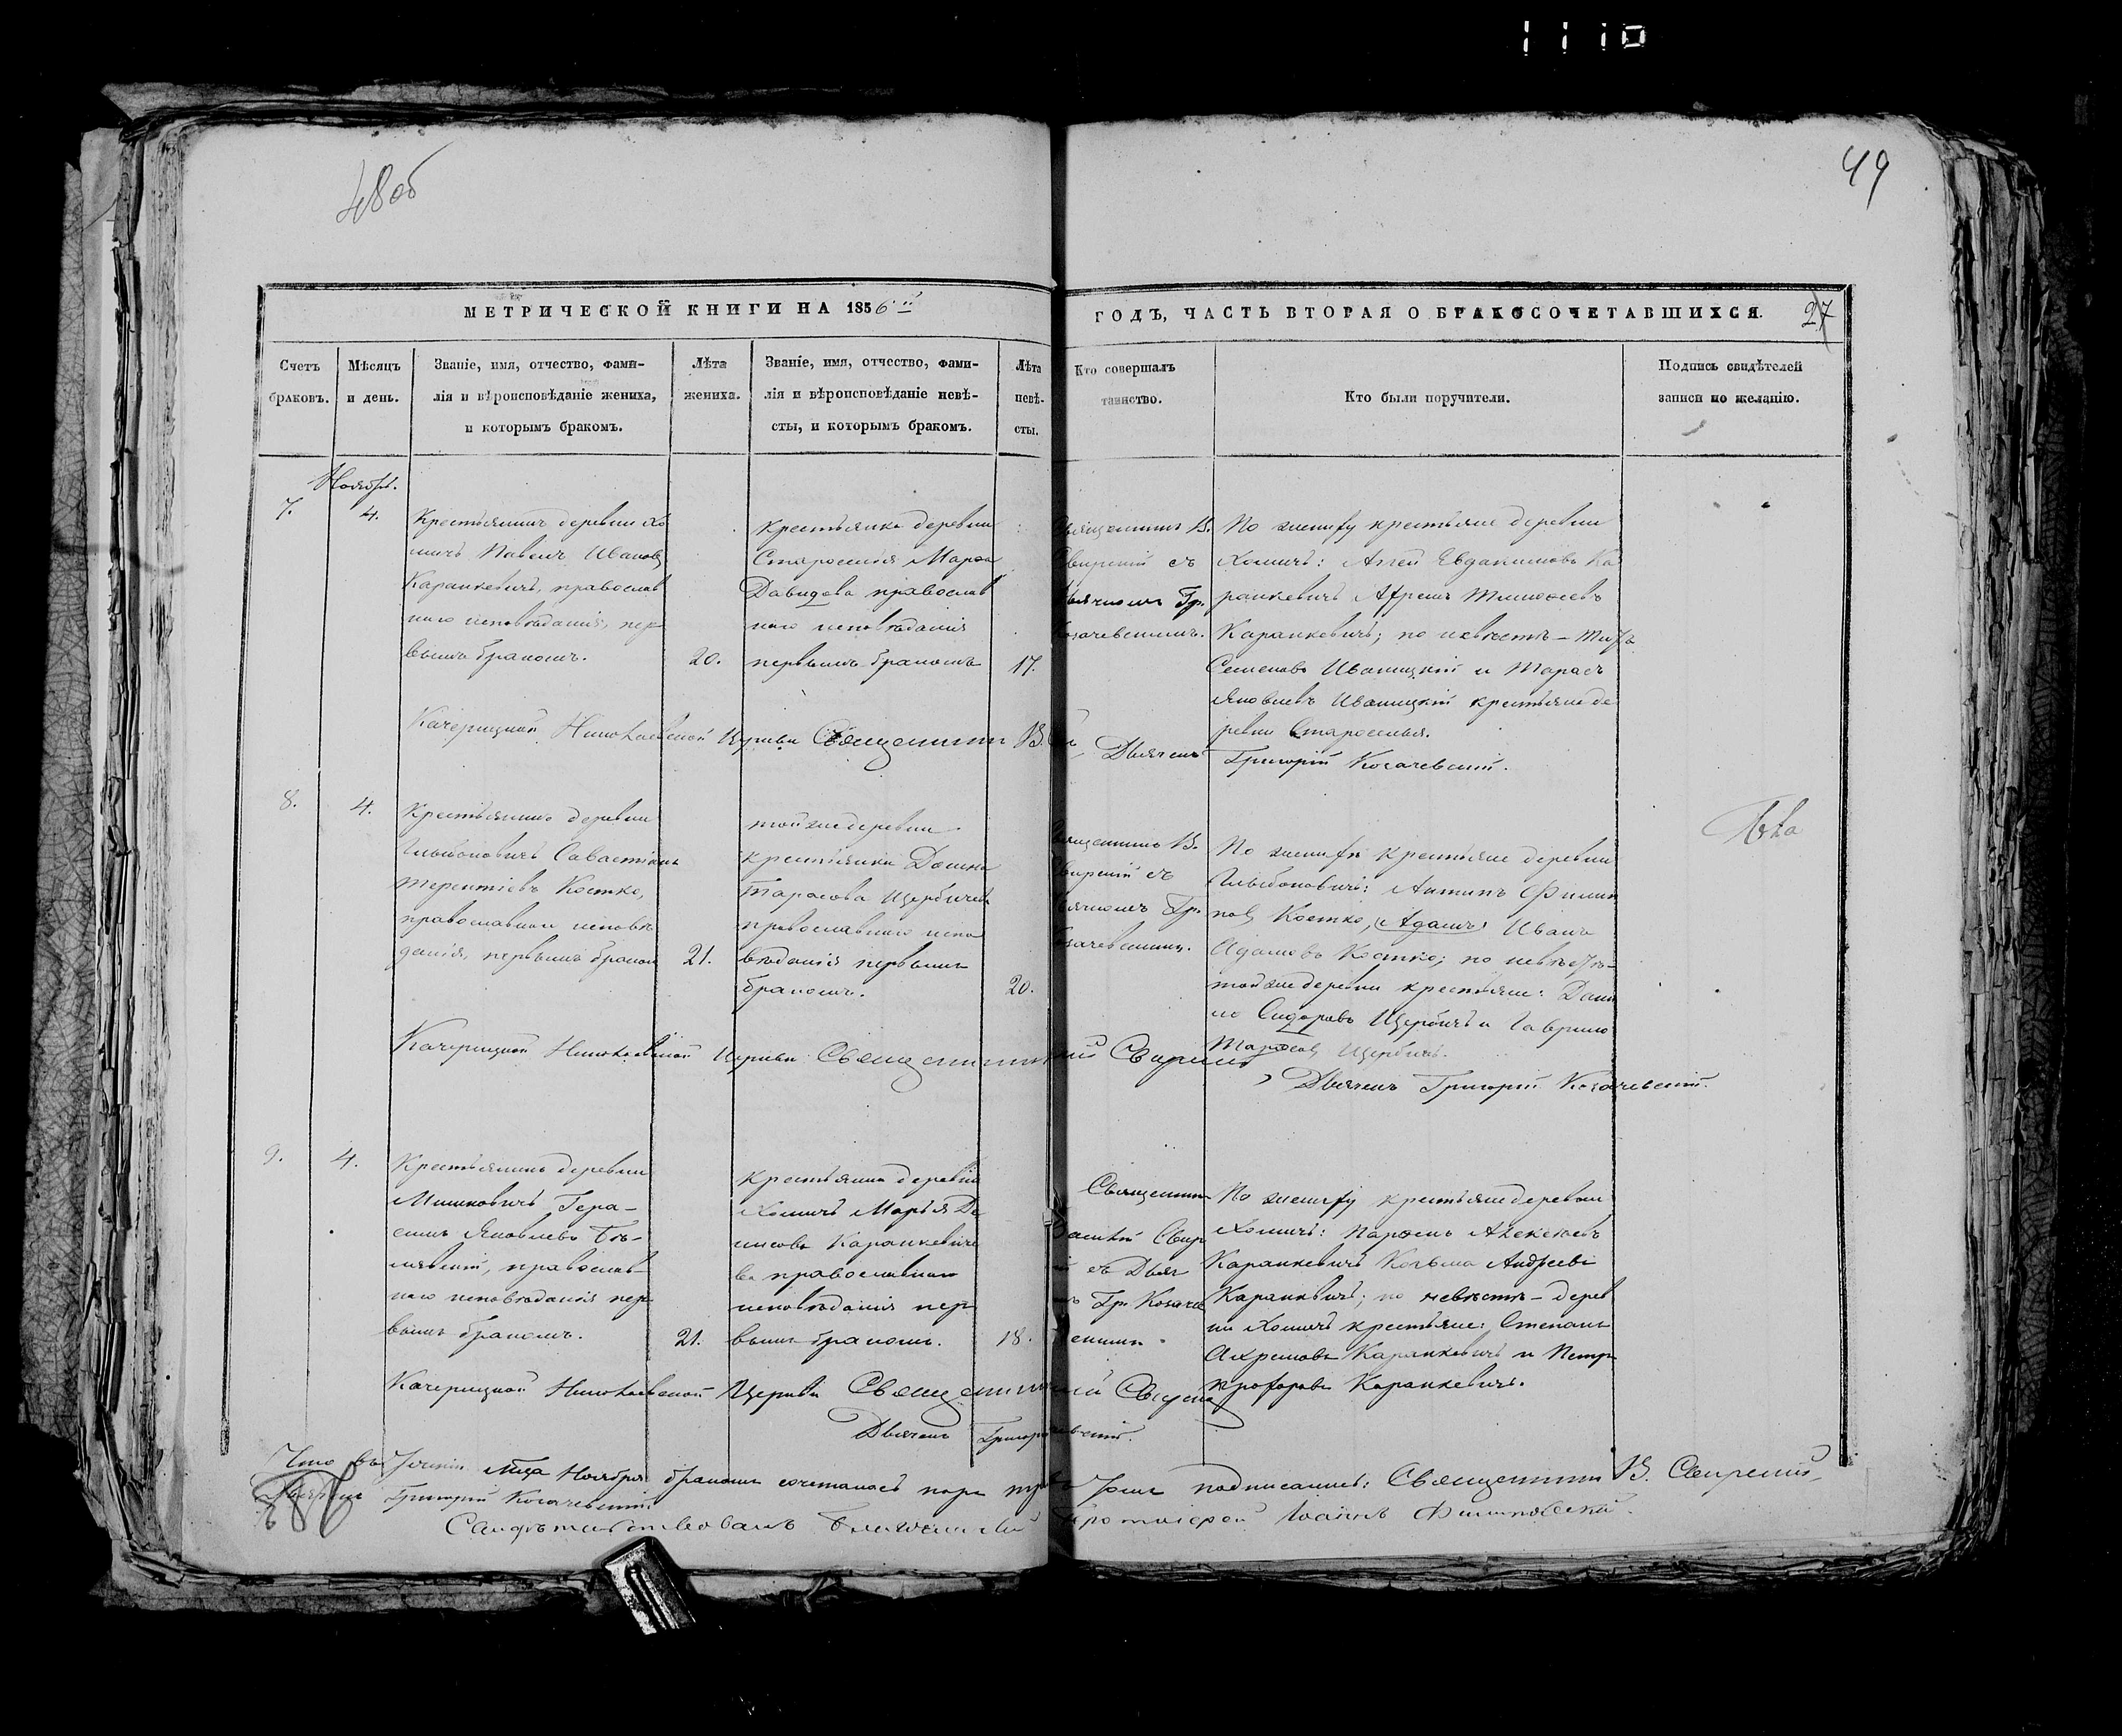 1110
48 об
49
МЕТРИЧЕСКОЙ КНИГИ НА 1856й
ГОДЪ, ЧАСТЬ ВТОРАЯ О БРАКОСОЧЕТАВШИХСЯ.
27
Счетъ
браковъ.
Мѣсяцъ
и день.
Званіе, имя, отчество, фами-
лія и вѣроисповѣданіе жениха,
и которымъ бракомъ.
Лѣта
жениха.
Званіе, имя, отчество, фами-
лія и вѣроисповѣданіе невѣ-
сты, и которымъ бракомъ.
Лѣта
невѣ-
сты.
Кто совершалъ
таинство.
Кто были поручители.
Подпись свидѣтелей
записи по желанію.
Ноябрь.
7.
4.
Крестьянинъ деревни Хо
мичъ Павелъ Ивановъ
Каранкевичъ, православ
наго исповѣданія, пер
вымъ бракомъ.
20.
крестьянка деревни
Староселья Марѳа
Давидова православ
наго исповѣданія
первымъ бракомъ
17.
Священникъ В.
Свирскій съ
Дьячкомъ Гр.
Козачевскимъ.
По жениху крестьяне деревни
Хомичъ: Евдокимовъ Ка
ранкевичъ Тимоѳеевъ
Каранкевичъ; по невѣстѣ –
Семеновъ Иваницкій и Тарасъ
Яковлевъ Иваницкій крестьяне де
ревни Староселья.
Качерицкой Николаевской Церкви Священникъ В.
Дьячекъ Григорій Козачевскій.
8.
4.
Крестьянинъ деревни
Глыбоковичъ Савастіянъ
Терентіевъ Костко,
православнаго исповѣ
данія, первымъ бракомъ
21.
той же деревни
крестьянка Домна
Тарасова Щербичева
православнаго испо
вѣданія первымъ
бракомъ.
20.
Священникъ В.
Свирскій съ
Дьячкомъ Гр.
Козачевскимъ.
По женихѣ крестьяне деревни
Глыбоковичъ: Антипъ Филип
повъ Костко, Адамъ Иванъ
Адамовъ Костко; по невѣстѣ –
той же деревни крестьяне: Дани
ло Сидоровъ Щербичъ и Гаврило
Тарасовъ Щербичъ.
Качерицкой Николаевской Церкви Священникъ Свирскій
Дьячекъ Григорій Козачевскій.
9.
4.
Крестьянинъ деревни
Мишковичъ Гера-
симъ Яковлевъ Бѣ-
лявскій, православ-
наго исповѣданія пер
вымъ бракомъ.
21.
крестьянка деревни
Хомичъ Марья Де
нисова Каранкевиче
ва православнаго
исповѣданія пер
вымъ бракомъ.
18.
Священникъ
Василій Свир
скій съ Дьяч
комъ Гр. Козаче
вскимъ.
По жениху крестьяне деревни
Хомичъ: Алексѣевъ
Каранкевичъ Козьма Андреевъ
Каранкевичъ; по невѣстѣ – дерев
ни Хомичъ крестьяне: Степанъ
Ахремовъ Каранкевичъ и Петръ
Прохоровъ Каранкевичъ.
Качерицкой Николаевской Церкви Священникъ Свирскій
Дьячекъ Григорій
Что въ теченіи м-ца Ноября бракомъ сочеталось подписались: Священникъ В. Свирскій
Дьячекъ Григорій Козачевскій.
Свидѣтельствовалъ Благочинный Протоіерей Іоаннъ